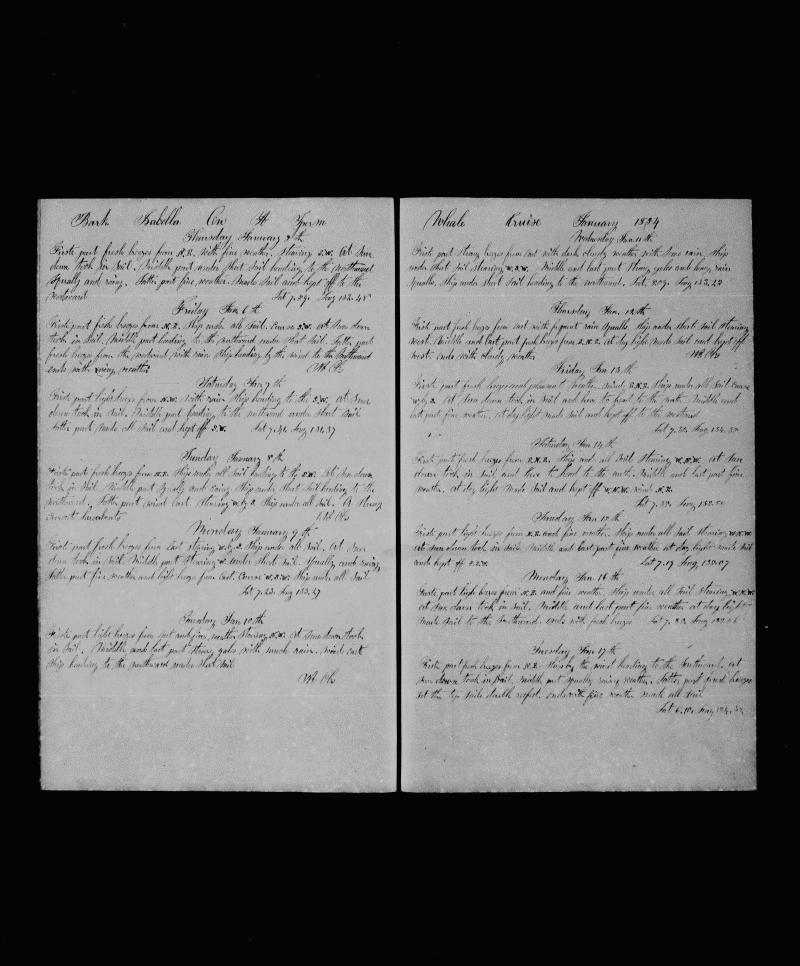 Bark Isabella On A Sperm
Thursday January 5th
Firste part fresh breezes from N.E. with fine weather. Stearing S.W. At Sun
down took in Sail. Middle part under short Sail heading to the Northward
Squally and raing. Latter part fine weather. Made Sail and kept off to the
Westward Lat 7.29. Long 132.48
Friday Jan 6th
Firste part fresh breezes from N.E. Ship under all Sail. Course S.W. at Sun down
took in Sail. Middle part heading to the Northward under Short Sail. Latter part
fresh breezes from the with rain Ship heading by the wind to the Southward
ends with raing weather
Saturday Jan 7th
Firste part light breezes from N.W. with rain Ship heading to the S.W. At Sun
down took in Sail. Middle part heading to the northward under Short Sail
Latter part Made all Sail and kept off S.W. Lat 7.41. Long 131.37
Sunday January 8th
Firste part fresh breezes from N.E. Ship under all Sail heading to the S.W. At Sun down
took in Sail Middle part Squally and raing Ship under Short Sail heading to the
Northward. Latter part wind East. Stearing W.by.S Ship under all Sail. A Strong
Current
Monday January 9th
Firste part fresh breezes from East stearing W.by.S. Ship under all Sail. At Sun
down took in Sail. Middle part Stearing W. under Short Sail. Squally and raing
Latter part fine weather and light breezes from East. Course W.S.W. Ship under all Sail
Lat 7.23. Long 133.37
Tuesday Jan 10th
Firste part light breezes from East and fine weather Stearing at Sun down took
in Sail. Middle and last part Strong gales with much rain. Wind East
Ship heading to the Northward under Short Sail
Whale Cruise January 1854
Wednesday Jan 11th
Firste part Strong breezes from East with dark cloudy weather with Some rain, Ship
under Short Sail stearing W.S.W. Middle and last part Strong gales and heavy rain
Squalls, Ship under Short Sail heading to the Northward. Lat. Long 133.22
Thursday Jan 12th
Firste part fresh breezes from East with frequent rain Squalls, Ship under short Sail Stearing
West. Middle and last part fresh breezes from E.N.E. at day light Made Sail and kept off
West. ends with cloudy weather
Friday Jan 13th
Firste part fresh breezes and pleasant weather, wind E.N.E. Ship under all Sail Course
W.by.S. At Sun down took in Sail and hove to head to the North. Middle and
last part fine weather. At day light Made Sail and kept off to the Westward
Lat 7.30. Long 134.37
Saturday Jan 14th
Firste part fresh breezes from E.N.E. Ship under all Sail, Stearing W.N.W. At Sun
down took in Sail and hove to head to the North. Middle and last part fine
weather. at day light Made Sail and kept off W.N.W. wind N.E.
Lat 7.
Sunday Jan 15th
Firste part light breezes from N.E. and fine weather. Ship under all Sail Stearing W.N.W.
At Sun down took in Sail. Middle and last part fine weather at day light Made Sail
and kept off Lat 7.19 Long
Monday Jan 16th
Firste part light breezes from N.E. and fine weather, Ship under all Sail Stearing W.N.W.
at Sun down took in Sail. Middle and last part fine weather at day light
Made Sail to the Southward. ends with fresh breezes Lat 7. Long
Tuesday Jan 17th
Firste part fresh breezes from N.E. Ship by the wind heading to the Southward. At
Sun down took in Sail. Middle part Squally raing weather. Latter part fresh breezes
Set the top Sails double reefed. ends with fine weather Made all Sail
Lat 6.10. Long 134.